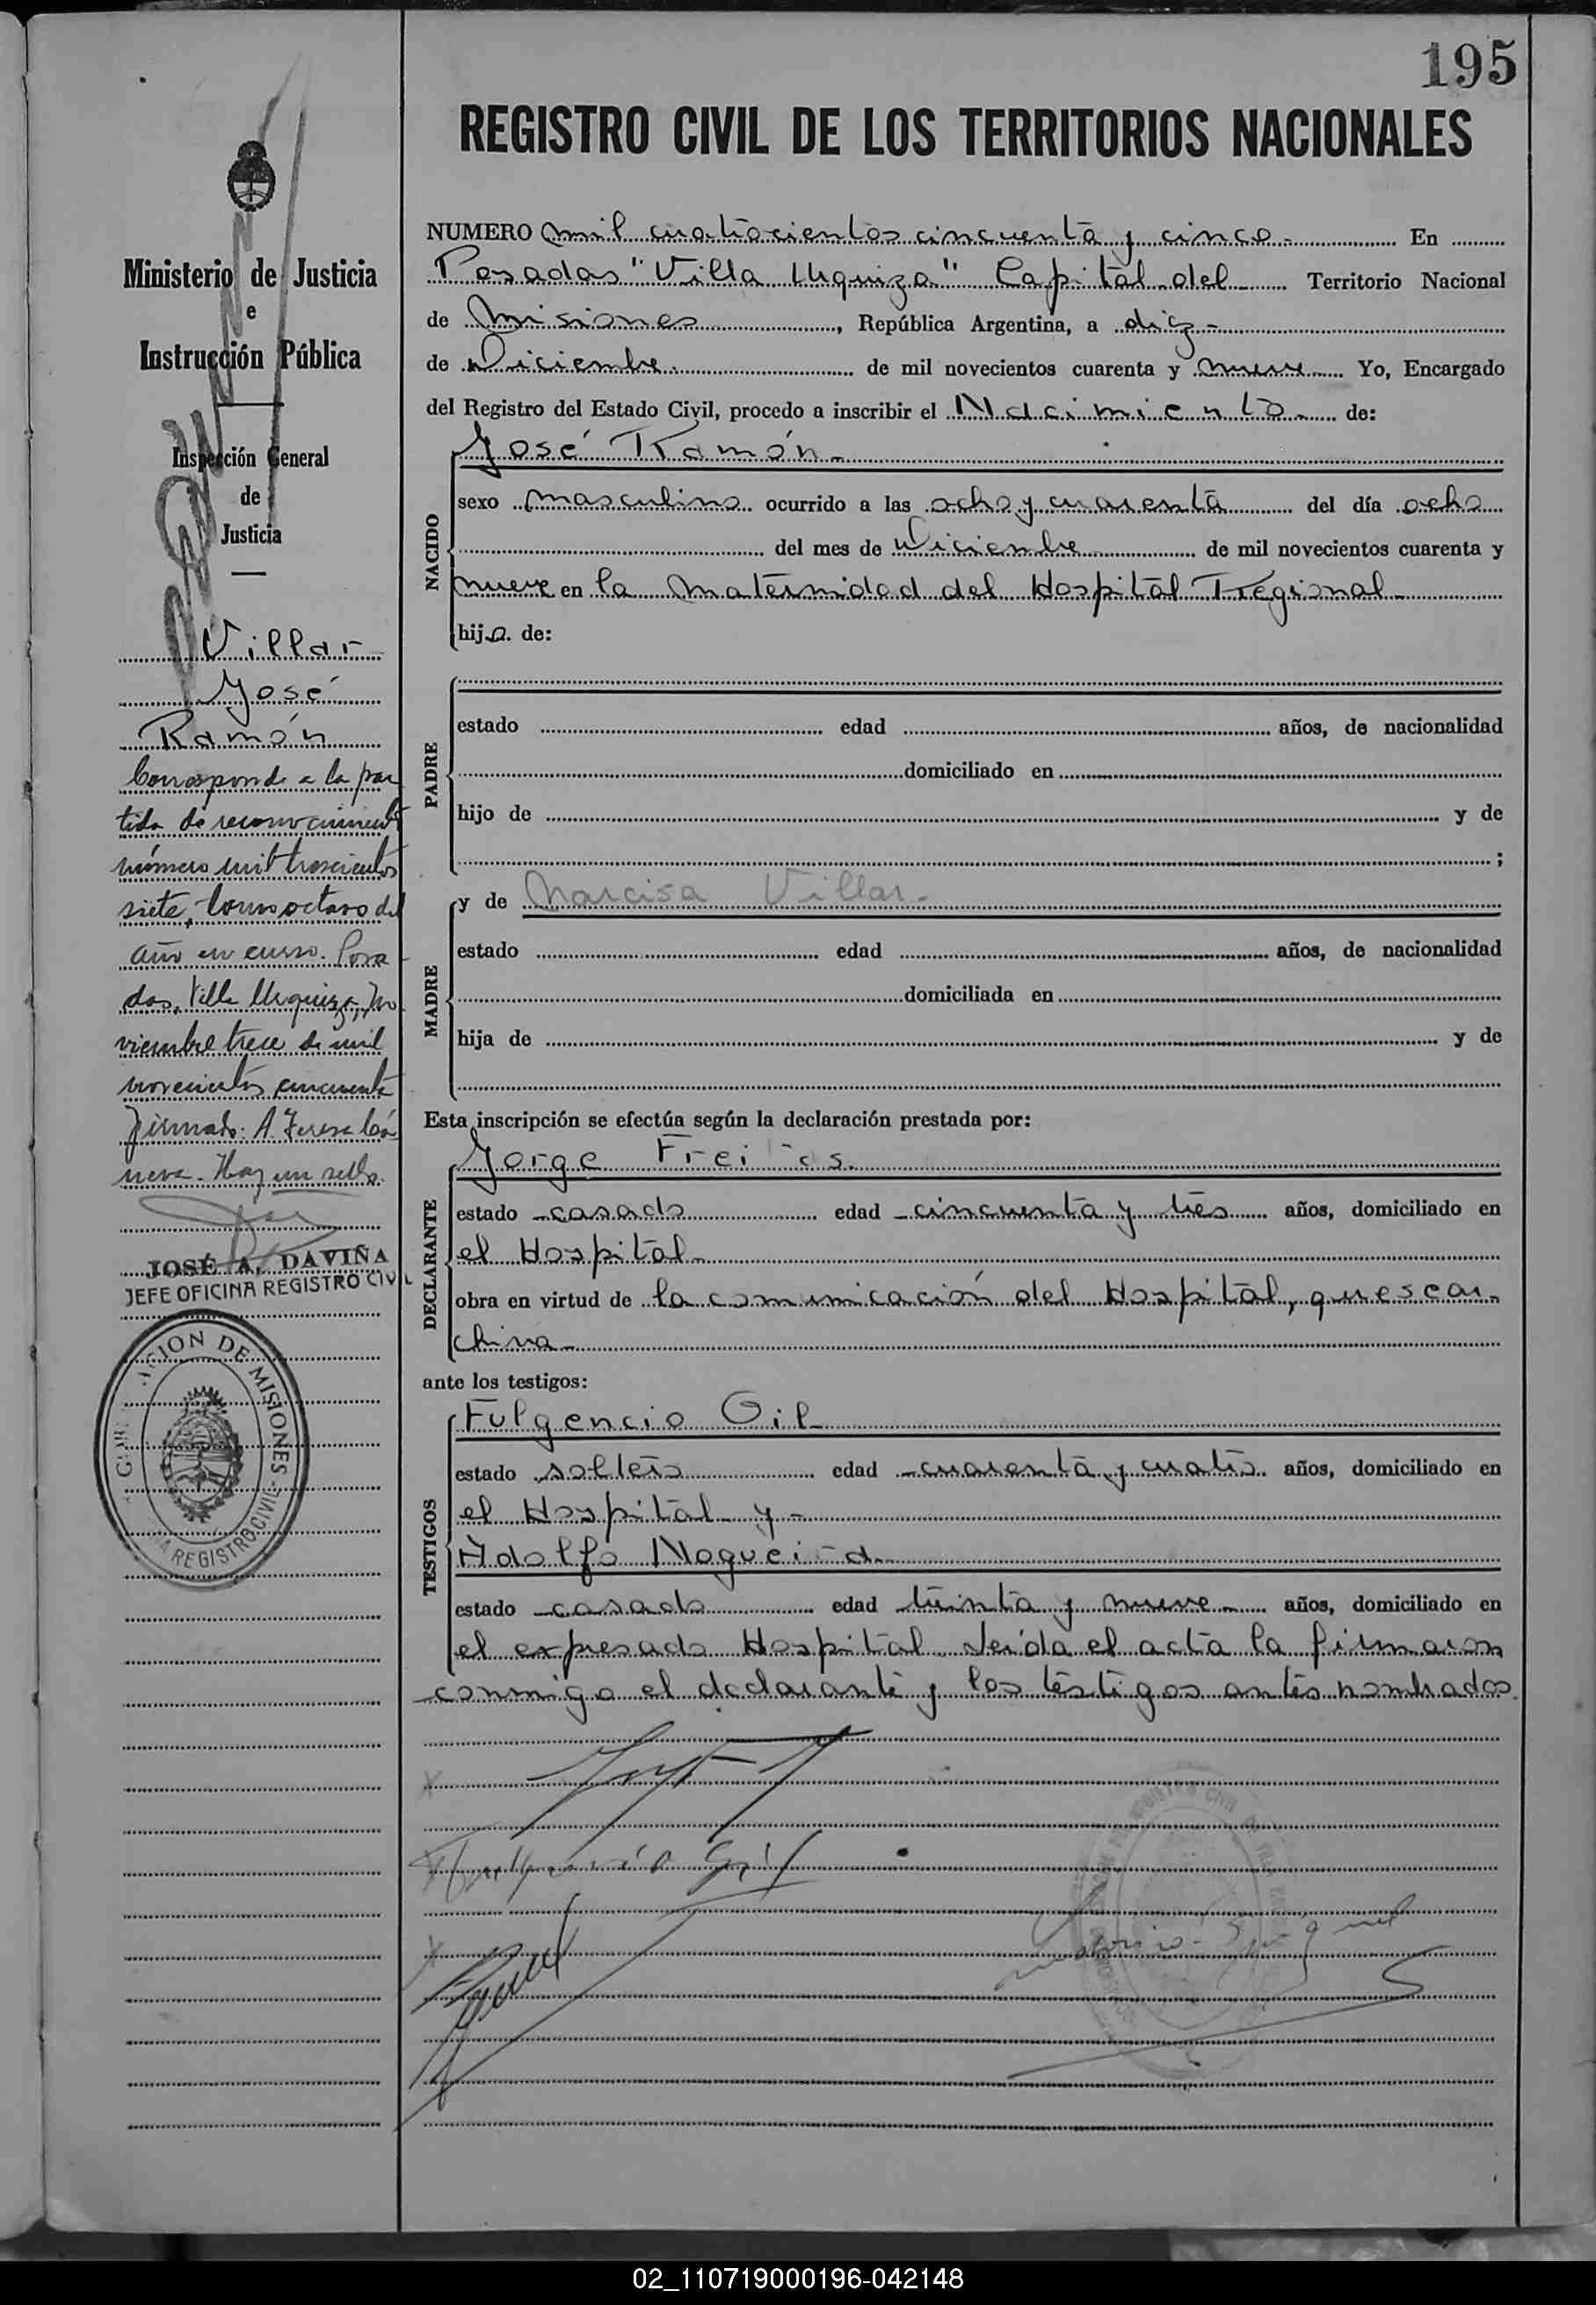 195
REGISTRO CIVIL DE LOS TERRITORIOS NACIONALES
Ministerio de Justicia
e
Instrucción Pública
Inspección General
de
Justicia
Villar
José
Ramón
Corresponde a la par
tida de reconocimiento
número mil trescientos
siete, tomo octavo del
año en curso. Posa
das, Villa Urquiza, no
viembre trece de mil
novecientos cincuenta
Firmado: A. Teresa
Hay un sello.
JOSÉ A. DAVIÑA
JEFE OFICINA REGISTRO CIVIL
DE MISIONES
REGISTRO CIVIL
NUMERO mil cuatrocientos cincuenta y cinco.- En
Posadas "Villa Urquiza" Capital del Territorio Nacional
de Misiones, República Argentina, a diez-
de Diciembre de mil novecientos cuarenta y nueve Yo, Encargado
del Registro del Estado Civil, procedo a inscribir el Nacimiento de:
NACIDO
José Ramón.-
sexo masculino ocurrido a las ocho y cuarenta del día ocho
del mes de Diciembre de mil novecientos cuarenta y
nueve en la Maternidad del Hospital Regional-
hijo de:
PADRE
estado edad años, de nacionalidad
domiciliado en
hijo de y de
;
MADRE
y de Narcisa Villar.-
estado edad años, de nacionalidad
domiciliada en
hija de y de
Esta inscripción se efectúa según la declaración prestada por:
DECLARANTE
Jorge Freitas.
estado casado edad cincuenta y tres años, domiciliado en
el Hospital-
obra en virtud de la comunicación del Hospital, que se ar-
chiva-
ante los testigos:
TESTIGOS
Fulgencio Gil
estado soltero edad cuarenta y cuatro años, domiciliado en
el Hospital y-
Adolfo Nogueira
estado casado edad treinta y nueve años, domiciliado en
el expresado Hospital. Leída el acta la firmaron
conmigo el declarante y los testigos antes nombrados.
Fulgencio Gil
02_110719000196-042148